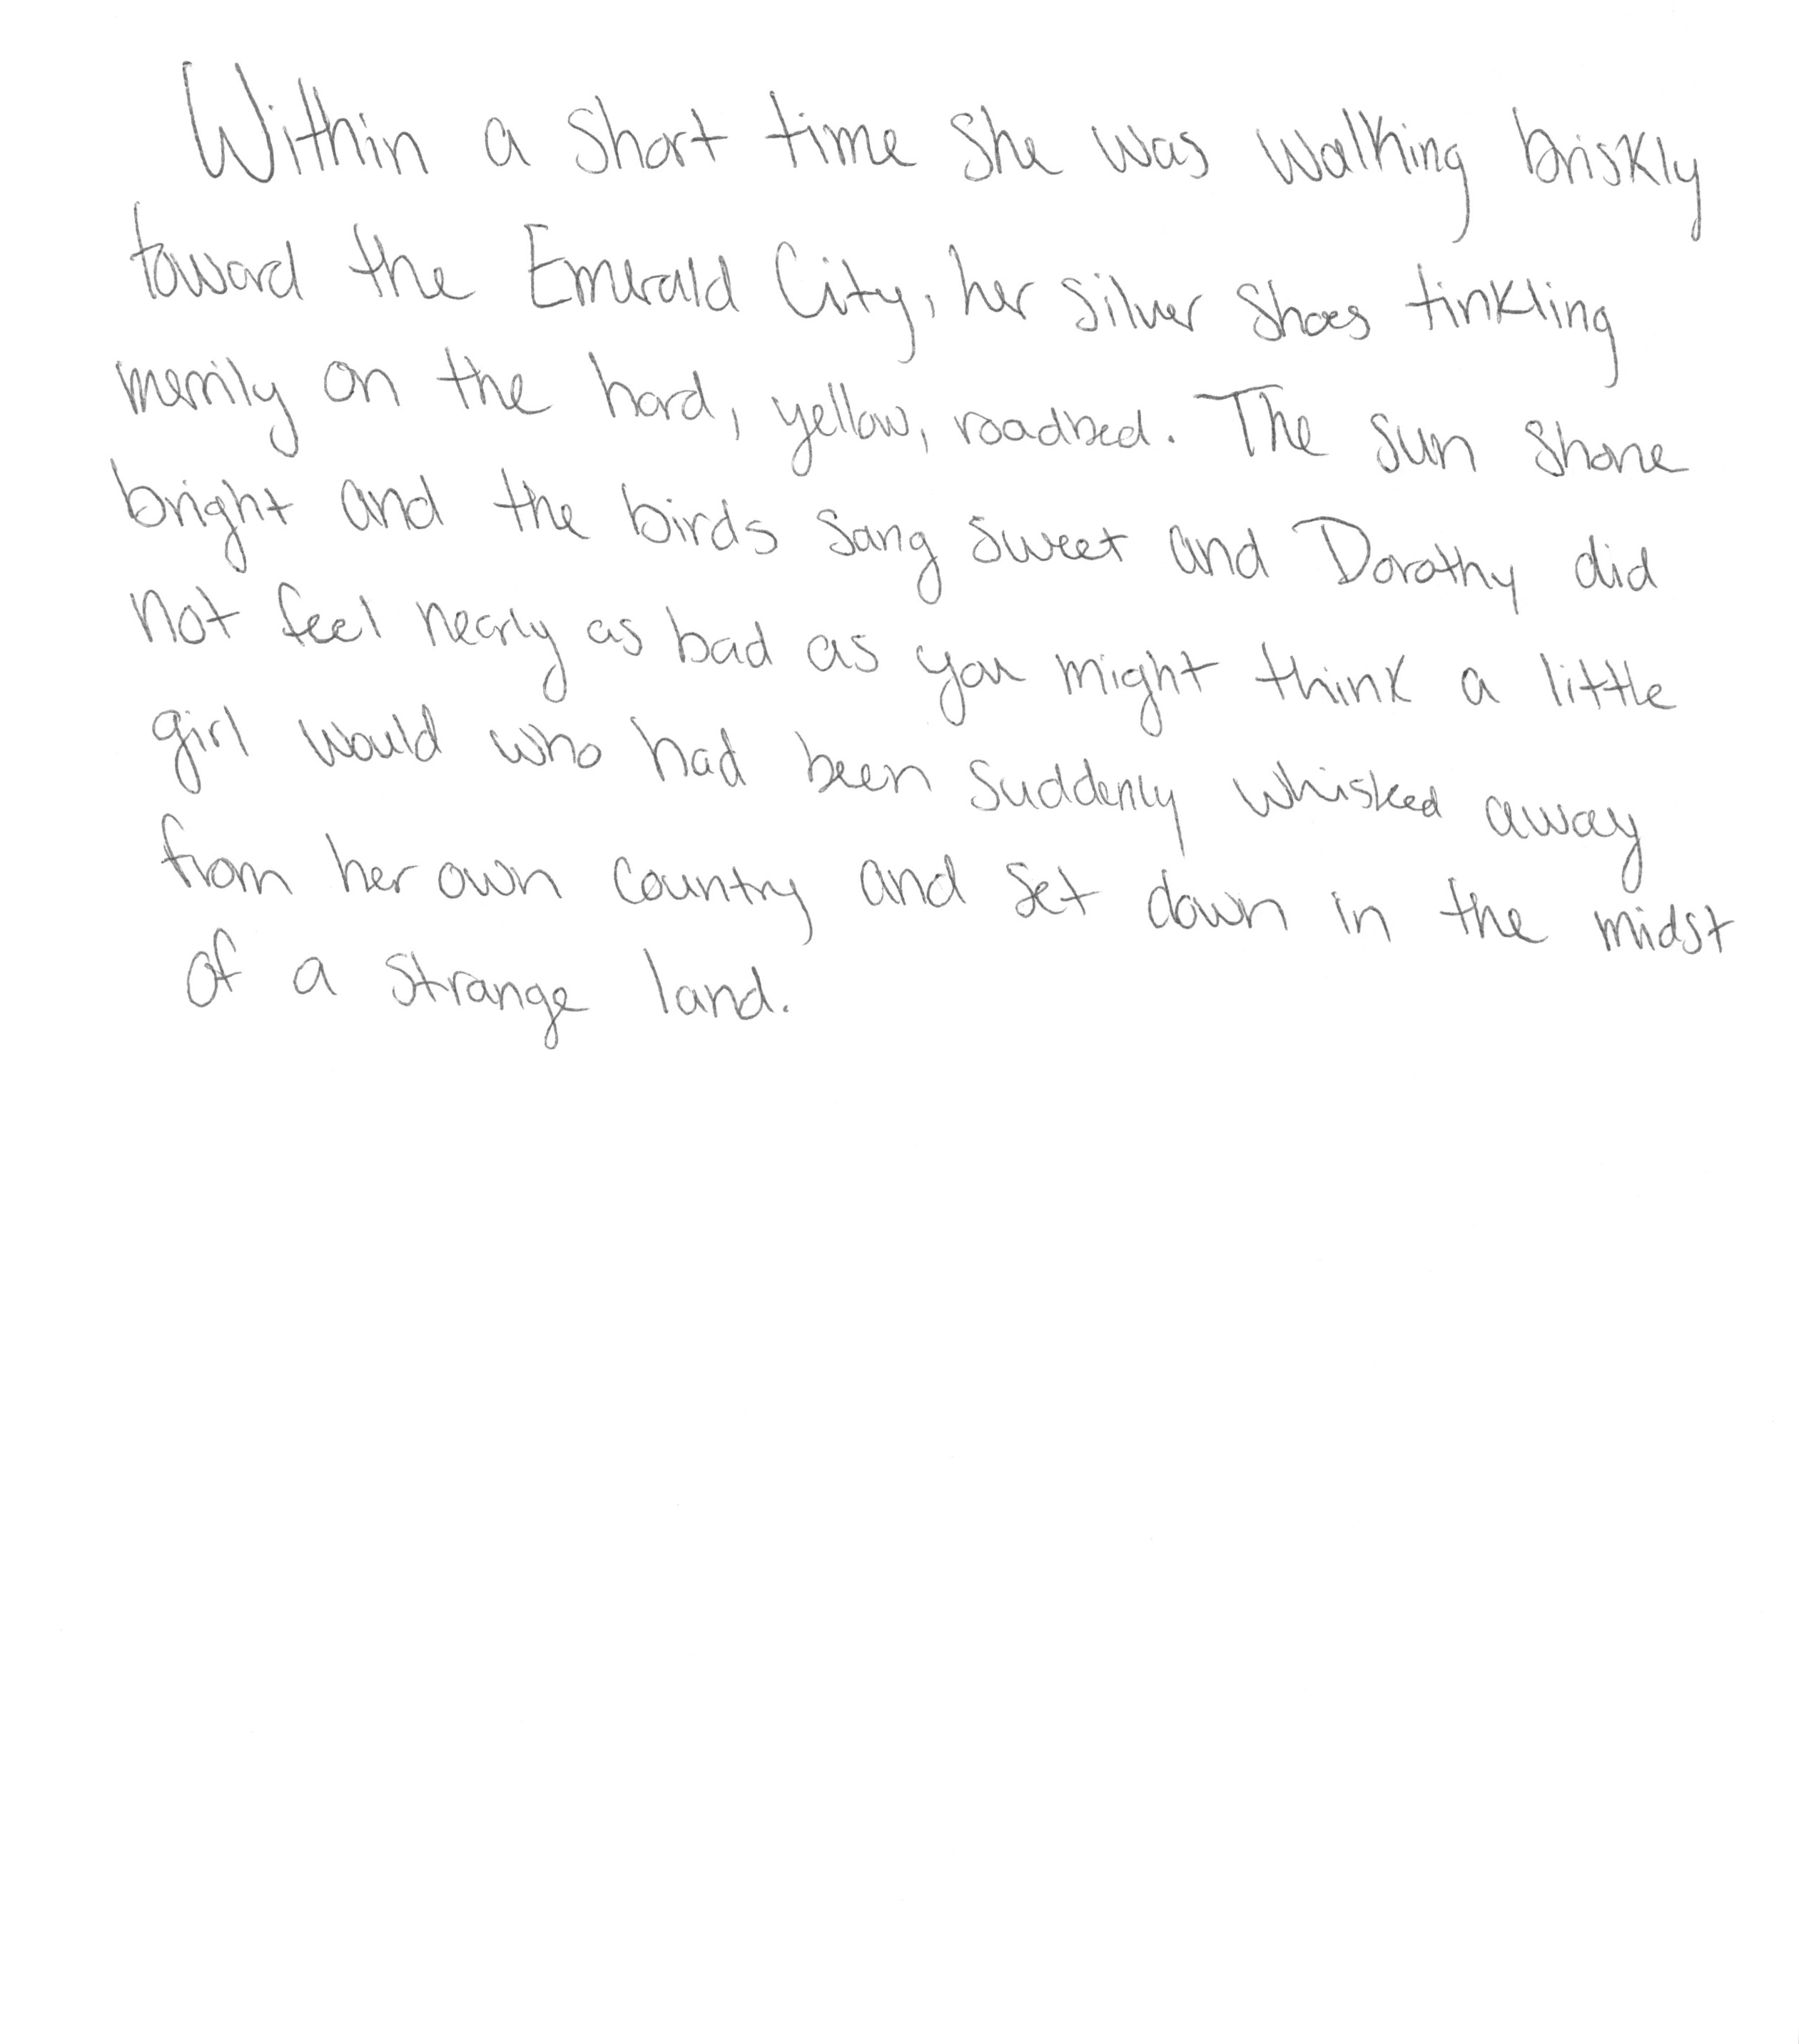 Within a short time she was walking briskly
toward the Emerald City, her silver shoes tinkling
merrily on the hard, yellow, roadbed. The sun shone
bright and the birds sang sweet and Dorothy did
not feel nearly as bad as you might think a little
girl would who had been suddenly whisked away
from her own country and set down in the midst
of a strange land.